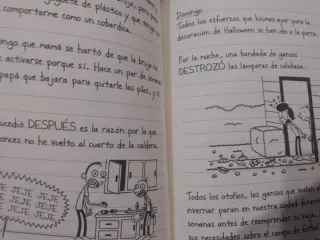 juguete de plástico y que tengo
comportarme como un cobardica.
ngo que mamá se hartó de que la bruja no
activarse porque sí. Hace un par de semanas
papá que bajara para quitarle las pilas, y
ucedió DESPUÉS es la razón por la que
onces no he vuelto al cuarto de la caldera.
JEJE JEJE
JEJE JEJE
JEJE JEJE
JEJE JEJE
JEJE
Domingo
Todos los esfuerzos que hicimos ayer para la
decoración de Halloween se han ido a la porra.
Por la noche, una bandada de gansos
DESTROZÓ las lámparas de calabaza.
Todos los otoños, los gansos que vuelan a
invernar paran en nuestra ciudad durante
semanas antes de reemprender su viaje.
sus necesidades sobre el campo de fútbol